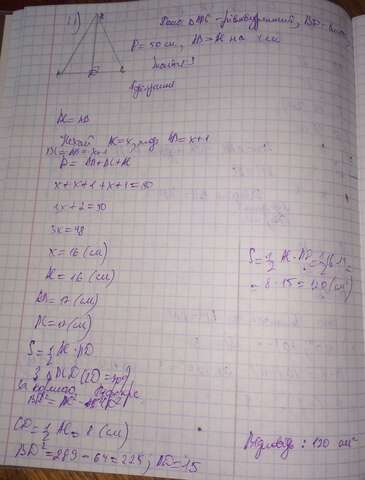 Дано: ΔABC - рівнобедрений, BD - висота,
P = 50 см, AB > AC на 1 см
Знайти: S
BC = AB
Нехай AC = x, тоді AB = x+1
BC = AB = x+1
P = AB+BC+AC
x + x+1 + x+1 = 50
3x + 2 = 50
3x = 48
x = 16 (см)
AC = 16 (см)
AB = 17 (см)
BC = 17 (см)
S = 1/2 AC · BD
З ΔBCD (∠D = 90°)
CD = 1/2 AC = 8 (см)
BD² = 289 - 64 = 225; BD = 15
S = 1/2 AC · BD = 1/2 16 · 15 =
= 8 · 15 = 120 (см²)
Відповідь: 120 см²